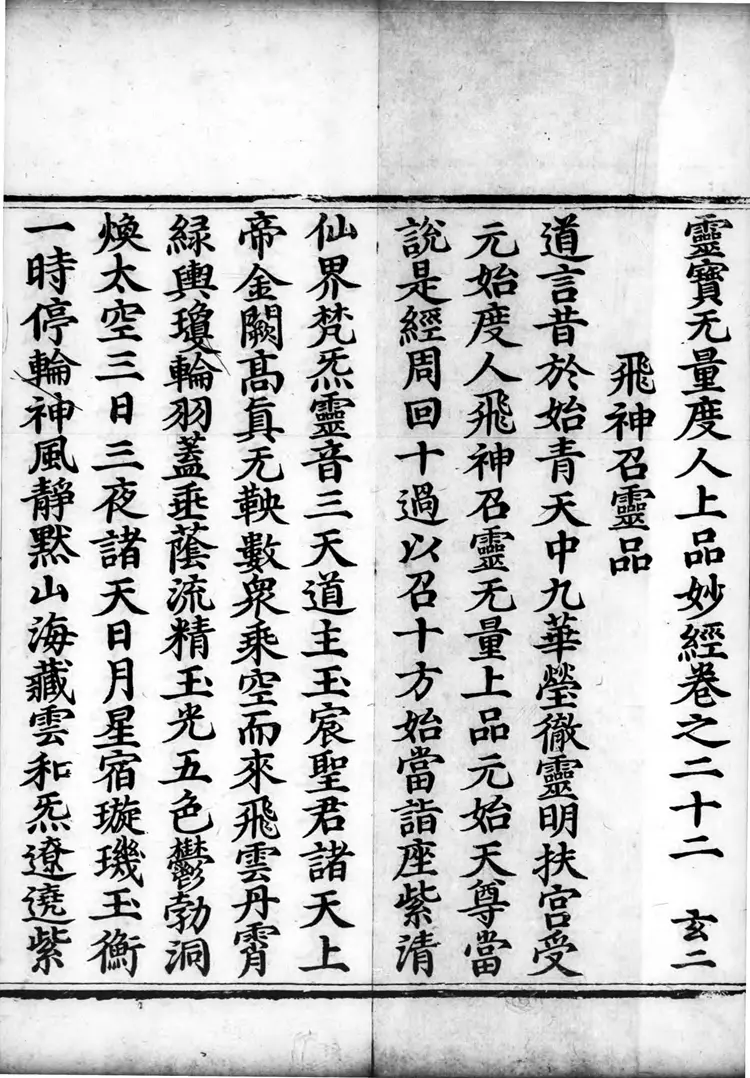 靈寶无量度人上品妙經卷之二十二 玄二
飛神召靈品
道言昔於始青天中九華瑩徹靈明扶宮受
元始度人飛神召靈无量上品元始天尊當
說是經周回十過以召十方始當詣座紫清
仙界梵炁靈音三天道主玉宸聖君諸天上
帝金闕高真无鞅數衆乘空而來飛雲丹霄
緑輿瓊輪羽蓋垂蔭流精玉光五色鬱勃洞
煥太空三日三夜諸天日月星宿璇璣玉衡
一時停輪神風靜默山海藏雲和炁遼遶紫